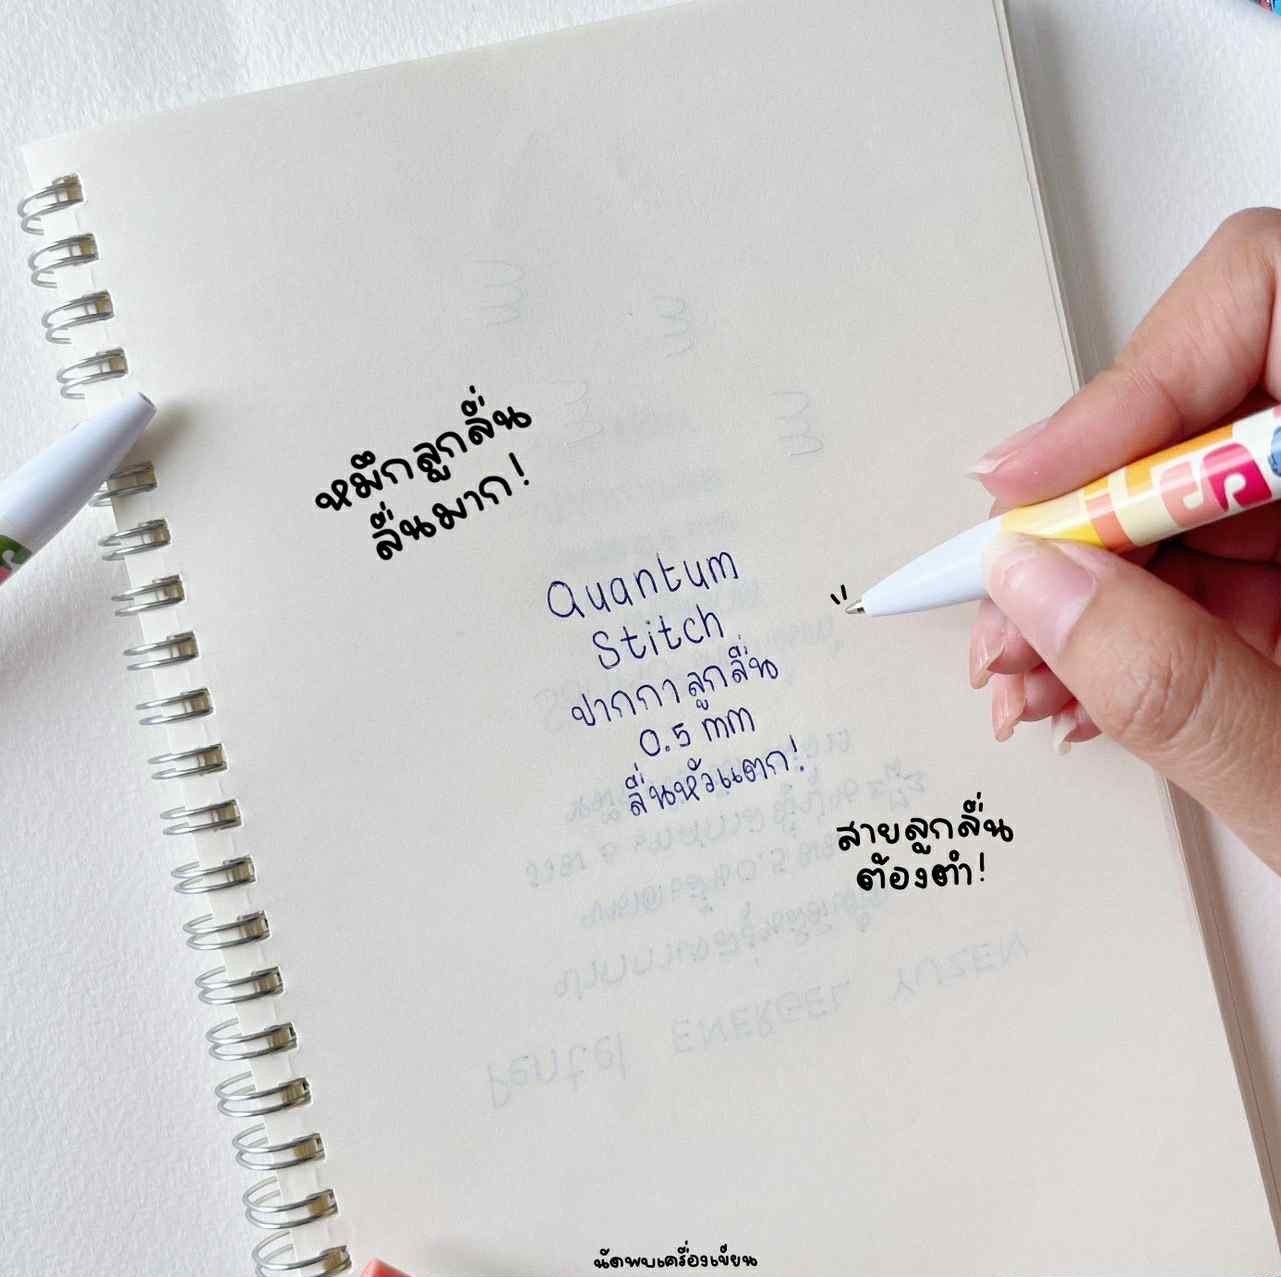 หมึกลูกลื่น
ลื่นมาก!
Quantum
Stitch
ปากกาลูกลื่น
0.5 mm
ลื่นหัวแตก!
สายลูกลื่น
ต้องตำ!
Pentel ENERGEL YUZEN
นัดพบเครื่องเขียน